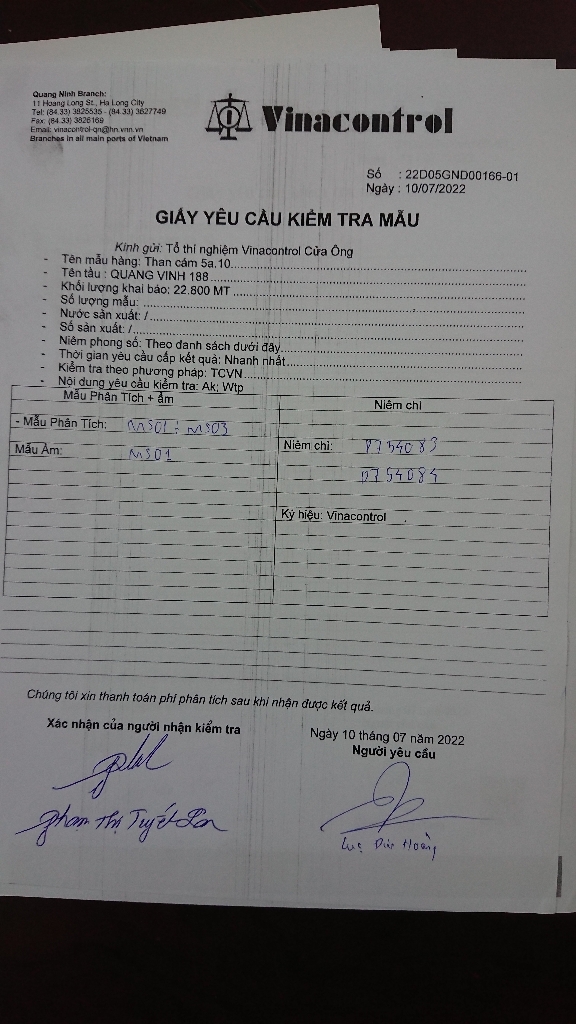 Quang Ninh Branch:
11 Hoang Long St., Ha Long City
Tel: (84.33) 3825535 - (84.33) 3827749
Fax: (84.33) 3826169
Email: vinacontrol-qn@hn.vnn.vn
Branches in all main ports of Vietnam
Vinacontrol
Số : 22D05GND00166-01
Ngày : 10/07/2022
GIẤY YÊU CẦU KIỂM TRA MẪU
Kính gửi: Tổ thí nghiệm Vinacontrol Cửa Ông
- Tên mẫu hàng: Than cám 5a.10
- Tên tàu : QUANG VINH 188
- Khối lượng khai báo: 22.800 MT
- Số lượng mẫu:
- Nước sản xuất: /
- Số sản xuất: /
- Niêm phong số: Theo danh sách dưới đây
- Thời gian yêu cầu cấp kết quả: Nhanh nhất
- Kiểm tra theo phương pháp: TCVN
- Nội dung yêu cầu kiểm tra: Ak; Wtp
Mẫu Phân Tích + ẩm
Niêm chì
- Mẫu Phân Tích: MS01 ÷ MS03
Niêm chì: 0754083
Mẫu Ẩm: MS01
0754084
Ký hiệu: Vinacontrol
Chúng tôi xin thanh toán phí phân tích sau khi nhận được kết quả.
Xác nhận của người nhận kiểm tra
Ngày 10 tháng 07 năm 2022
Người yêu cầu
Phạm Thị Tuyết Lan
Lục Đức Hoàng